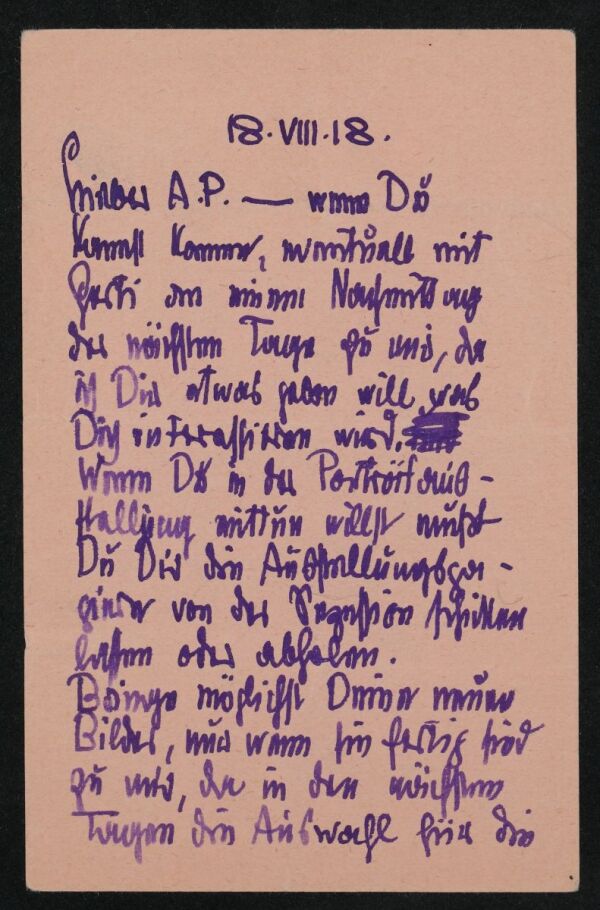 18.VIII.18.
Lieber A.P. — wenn Du
kannst komme, eventuell mit
Gerti an einem Nachmittag
der nächsten Tage zu uns, da
ich Dir etwas geben will, was
Dich interessieren wird.
Wenn Du in der Porträtaus-
stellung mittun willst mußt
Du Dir die Ausstellungspa-
piere von der Sezession schicken
lassen oder abholen.
Bringe möglichst Deine neuen
Bilder, nur wenn sie fertig sind
zu uns, da in den nächsten
Tagen die Auswahl für die